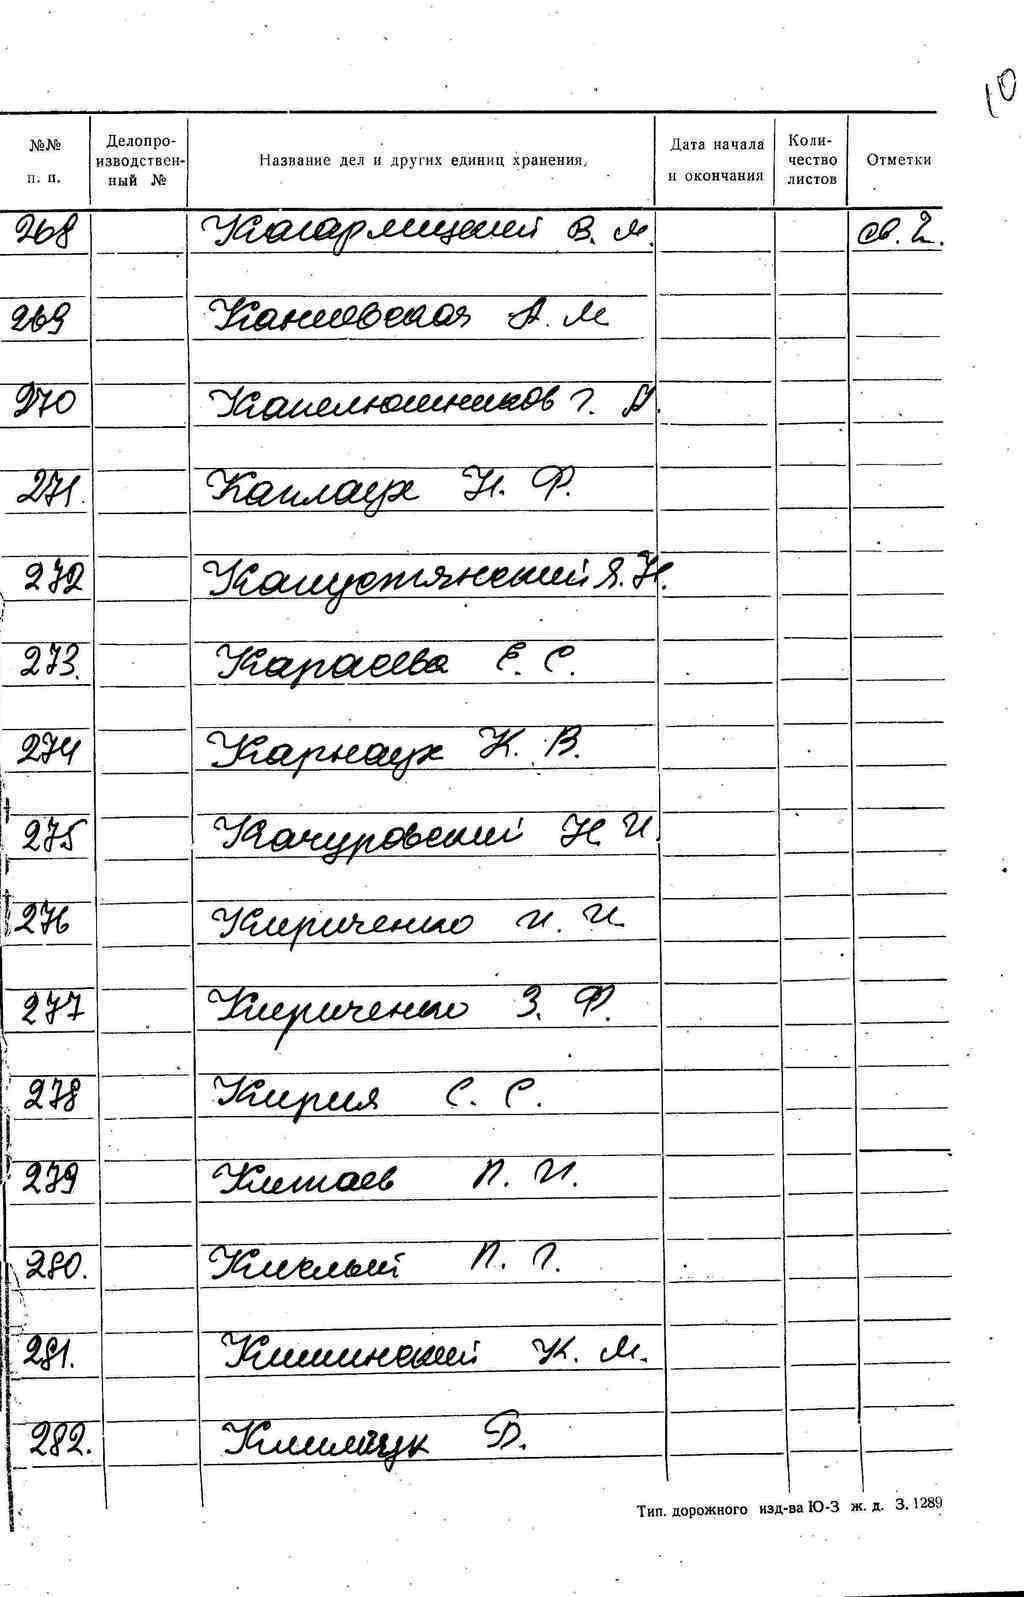 10
№№ п. п. Делопроизводственный № Название дел и других единиц хранения Дата начала и окончания Количество листов Отметки
268 Кагарлицкий В. М. св. 2.
269 Каневская А. М
270 Капелюшников Г. А.
271. Каплаух Н. Ф.
272 Капустянский Я. Н.
273. Караева Е. С.
274 Карнаух К. В.
275 Качуровский Н. И.
276 Кириченко И. И.
277 Кириченко З. Ф.
278 Кирия С. С.
279 Китаев П. И.
280. Кислый П. Г.
281. Кишинский К. М.
282. Климчук В.
Тип. дорожного изд-ва Ю-З ж. д. З. 1289